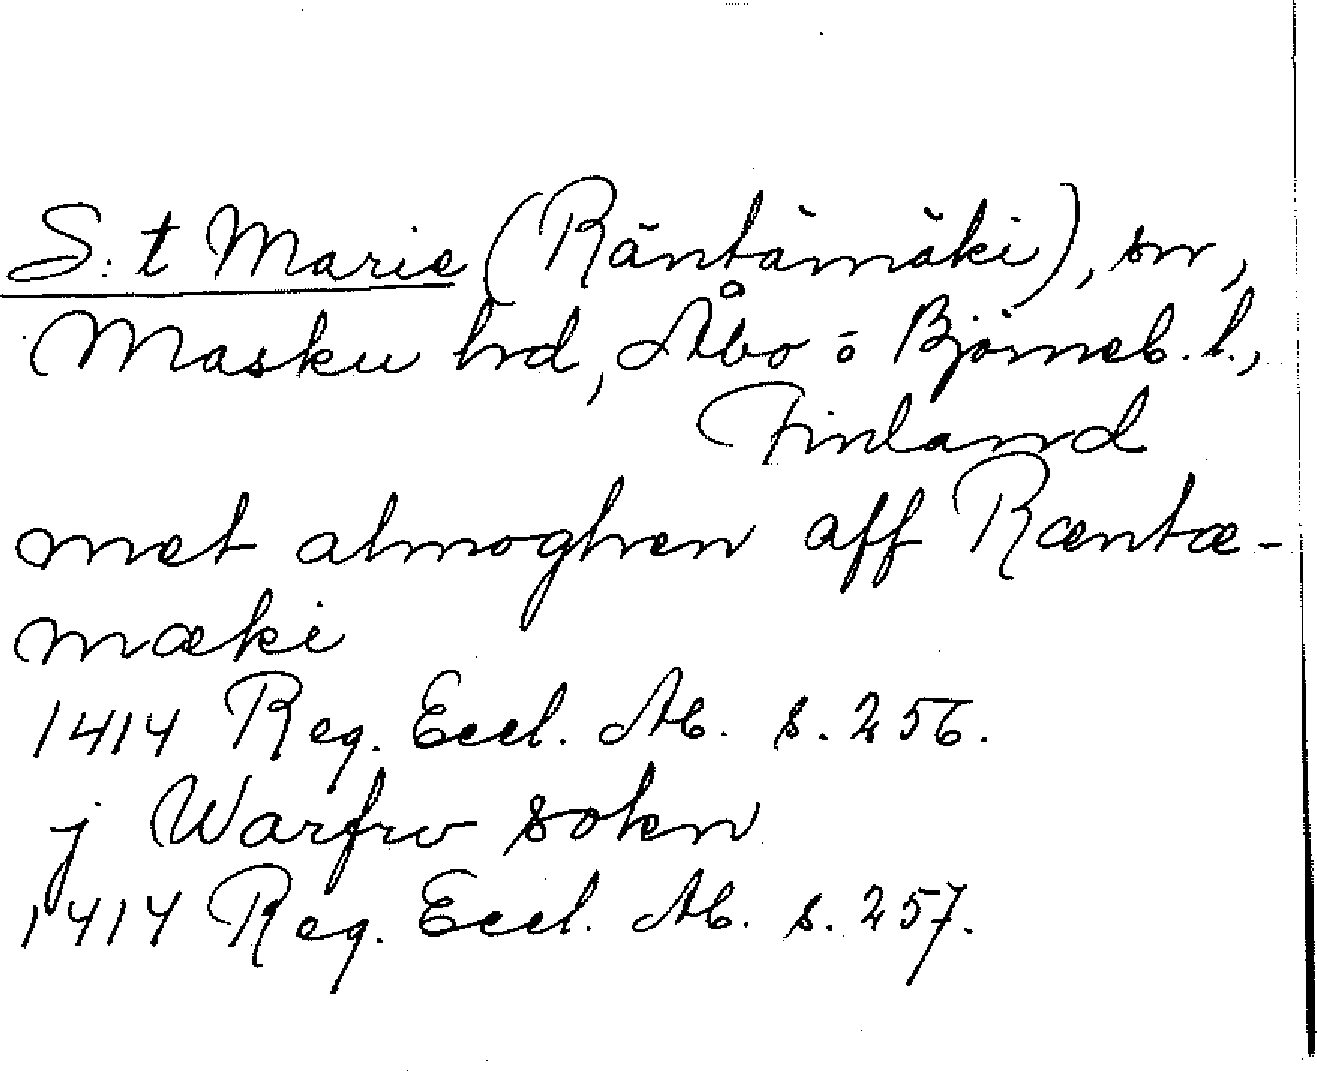 S:t Marie (Räntämäki), sn,
Masku hrd, Åbo o Björneb. l.,
Finland
met almoghen aff Ræntæ-
mæki
1414 Reg. Eccl. Ab. s. 256.
j Warfrv sokn
1414 Reg. Eccl. Ab. s. 257.